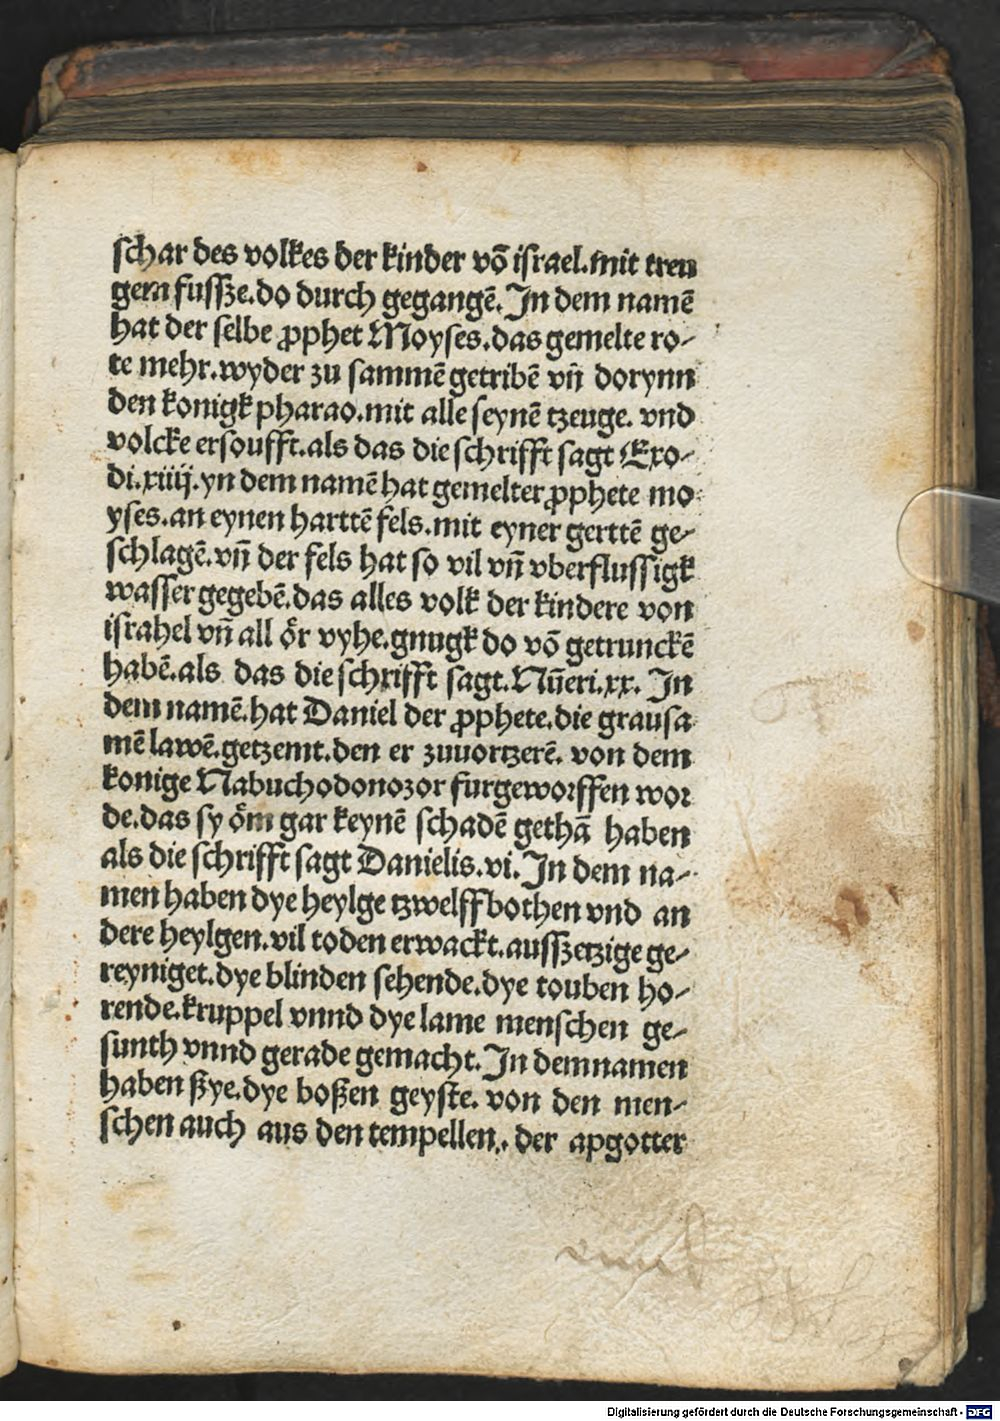 schar des volkes der kinder võ israel.mit treu
gem fussze.do durch gegangẽ. In dem namẽ
hat der selbe ꝓphet Moyses.das gemelte ro-
te mehr.wyder zu sammẽ getribẽ vñ dorynn
den konigk pharao.mit alle seynẽ tzeuge. vnd
volcke ersoufft.als das die schrifft sagt Exo-
di.xiiij.yn dem namẽ hat gemelter ꝓphete mo-
yses.an eynen harttẽ fels.mit eyner gerttẽ ge-
schlagẽ.vñ der fels hat so vil vñ vberflussigk
wasser gegebẽ.das alles volk der kindere von
israhel vñ all ör vyhe.gnugk do võ getrunckẽ
habẽ.als das die schrifft sagt.Nũeri.xx. In
dem namẽ.hat Daniel der ꝓphete.die grausa
mẽ lawẽ.getzemt.den er zuuortzerẽ. von dem
konige Nabuchodonozor furgeworffen wor
de.das sy öm gar keynẽ schadẽ gethã haben
als die schrifft sagt Danielis.vi. In dem na-
men haben dye heylge tzwelffbothen vnd an
dere heylgen.vil toden erwackt.ausszetzige ge-
reyniget.dye blinden sehende.dye touben ho-
rende.kruppel vnnd dye lame menschen ge-
sunth vnnd gerade gemacht. In dem namen
haben ßye.dye boßen geyste. von den men-
schen auch aus den tempellen. der apgotter
Digitalisierung gefördert durch die Deutsche Forschungsgemeinschaft - DFG